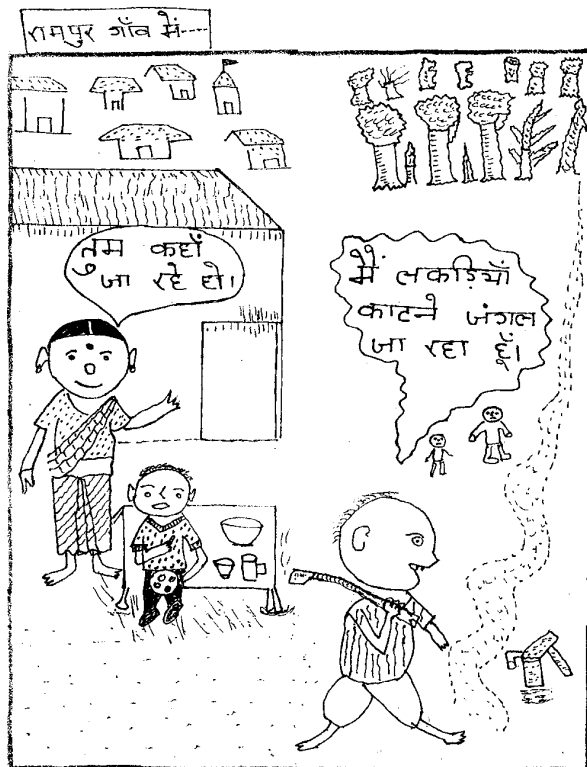 रामपुर गाँव में----
तुम कहाँ
जा रहे हो।
मैं लकड़ियाँ
काटने जंगल
जा रहा हूँ।